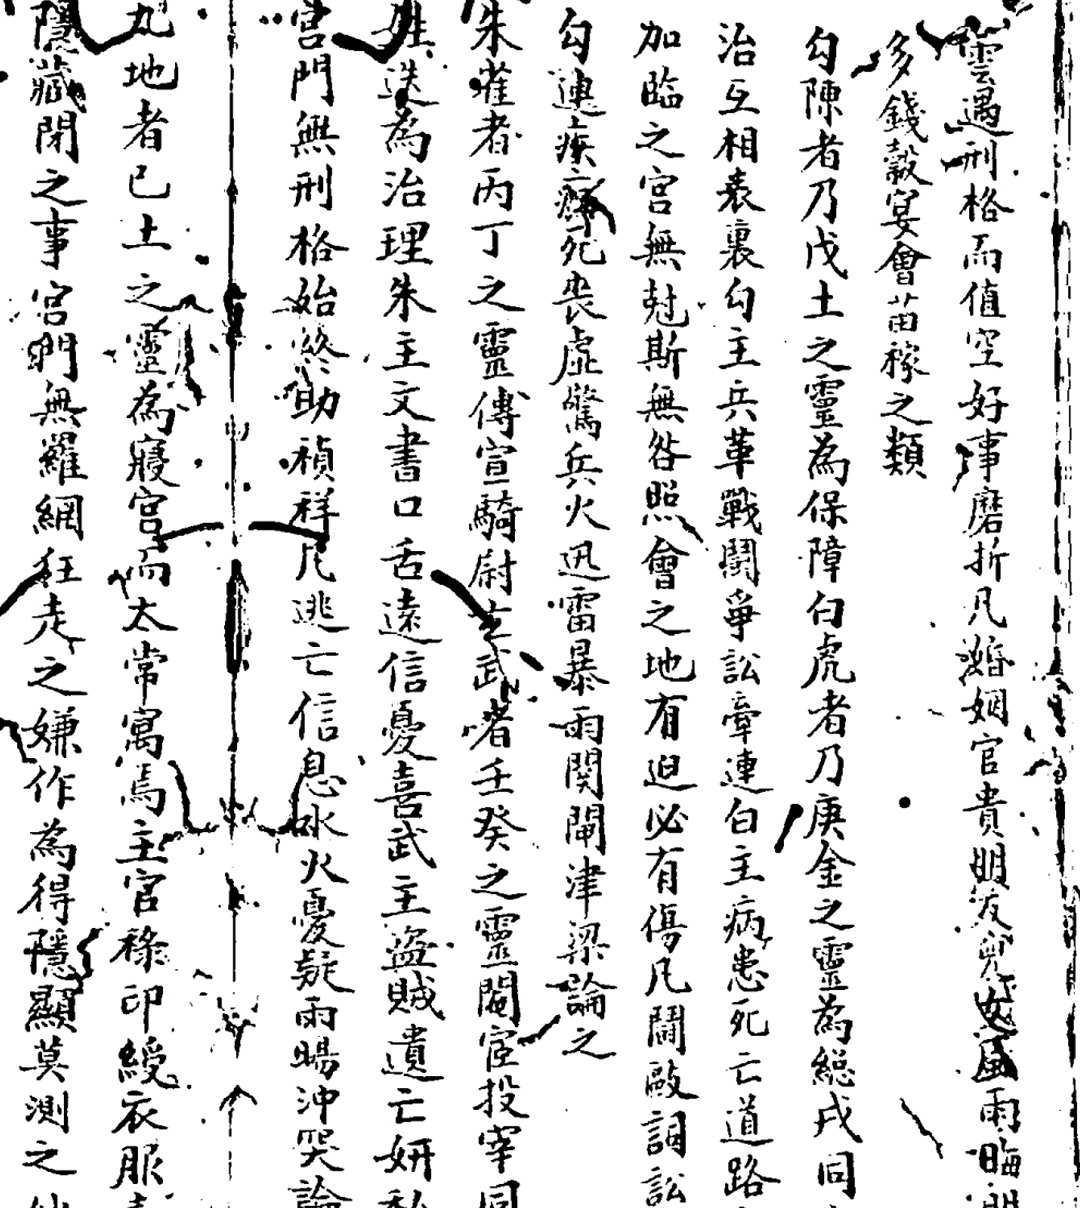 雲遇刑格而值空好事磨折凡婚姻官貴朋友兒女風雨晦明
多錢穀宴會苗稼之類
勾陳者乃戊土之靈為保障白虎者乃庚金之靈為總戎同
治互相表裏勾主兵革戰鬭爭訟牽連白主病患死亡道路
加臨之宮無尅斯無咎照會之地有迫必有傷凡鬭毆詞訟
勾連疾病死喪虛驚兵火迅雷暴雨関閘津梁論之
朱雀者丙丁之靈傳宣騎尉玄武者壬癸之靈閽宦投宰同
姓迭為治理朱主文書口舌遠信憂喜武主盜賊遺亡妍私
宮門無刑格始終助禎祥凡逃亡信息水火憂疑雨暘沖哭論
九地者己土之靈為寢宮而太常寓焉主官祿印綬衣服
隱藏閉之事宮門無羅網狂走之嫌作為得隱顯莫測之